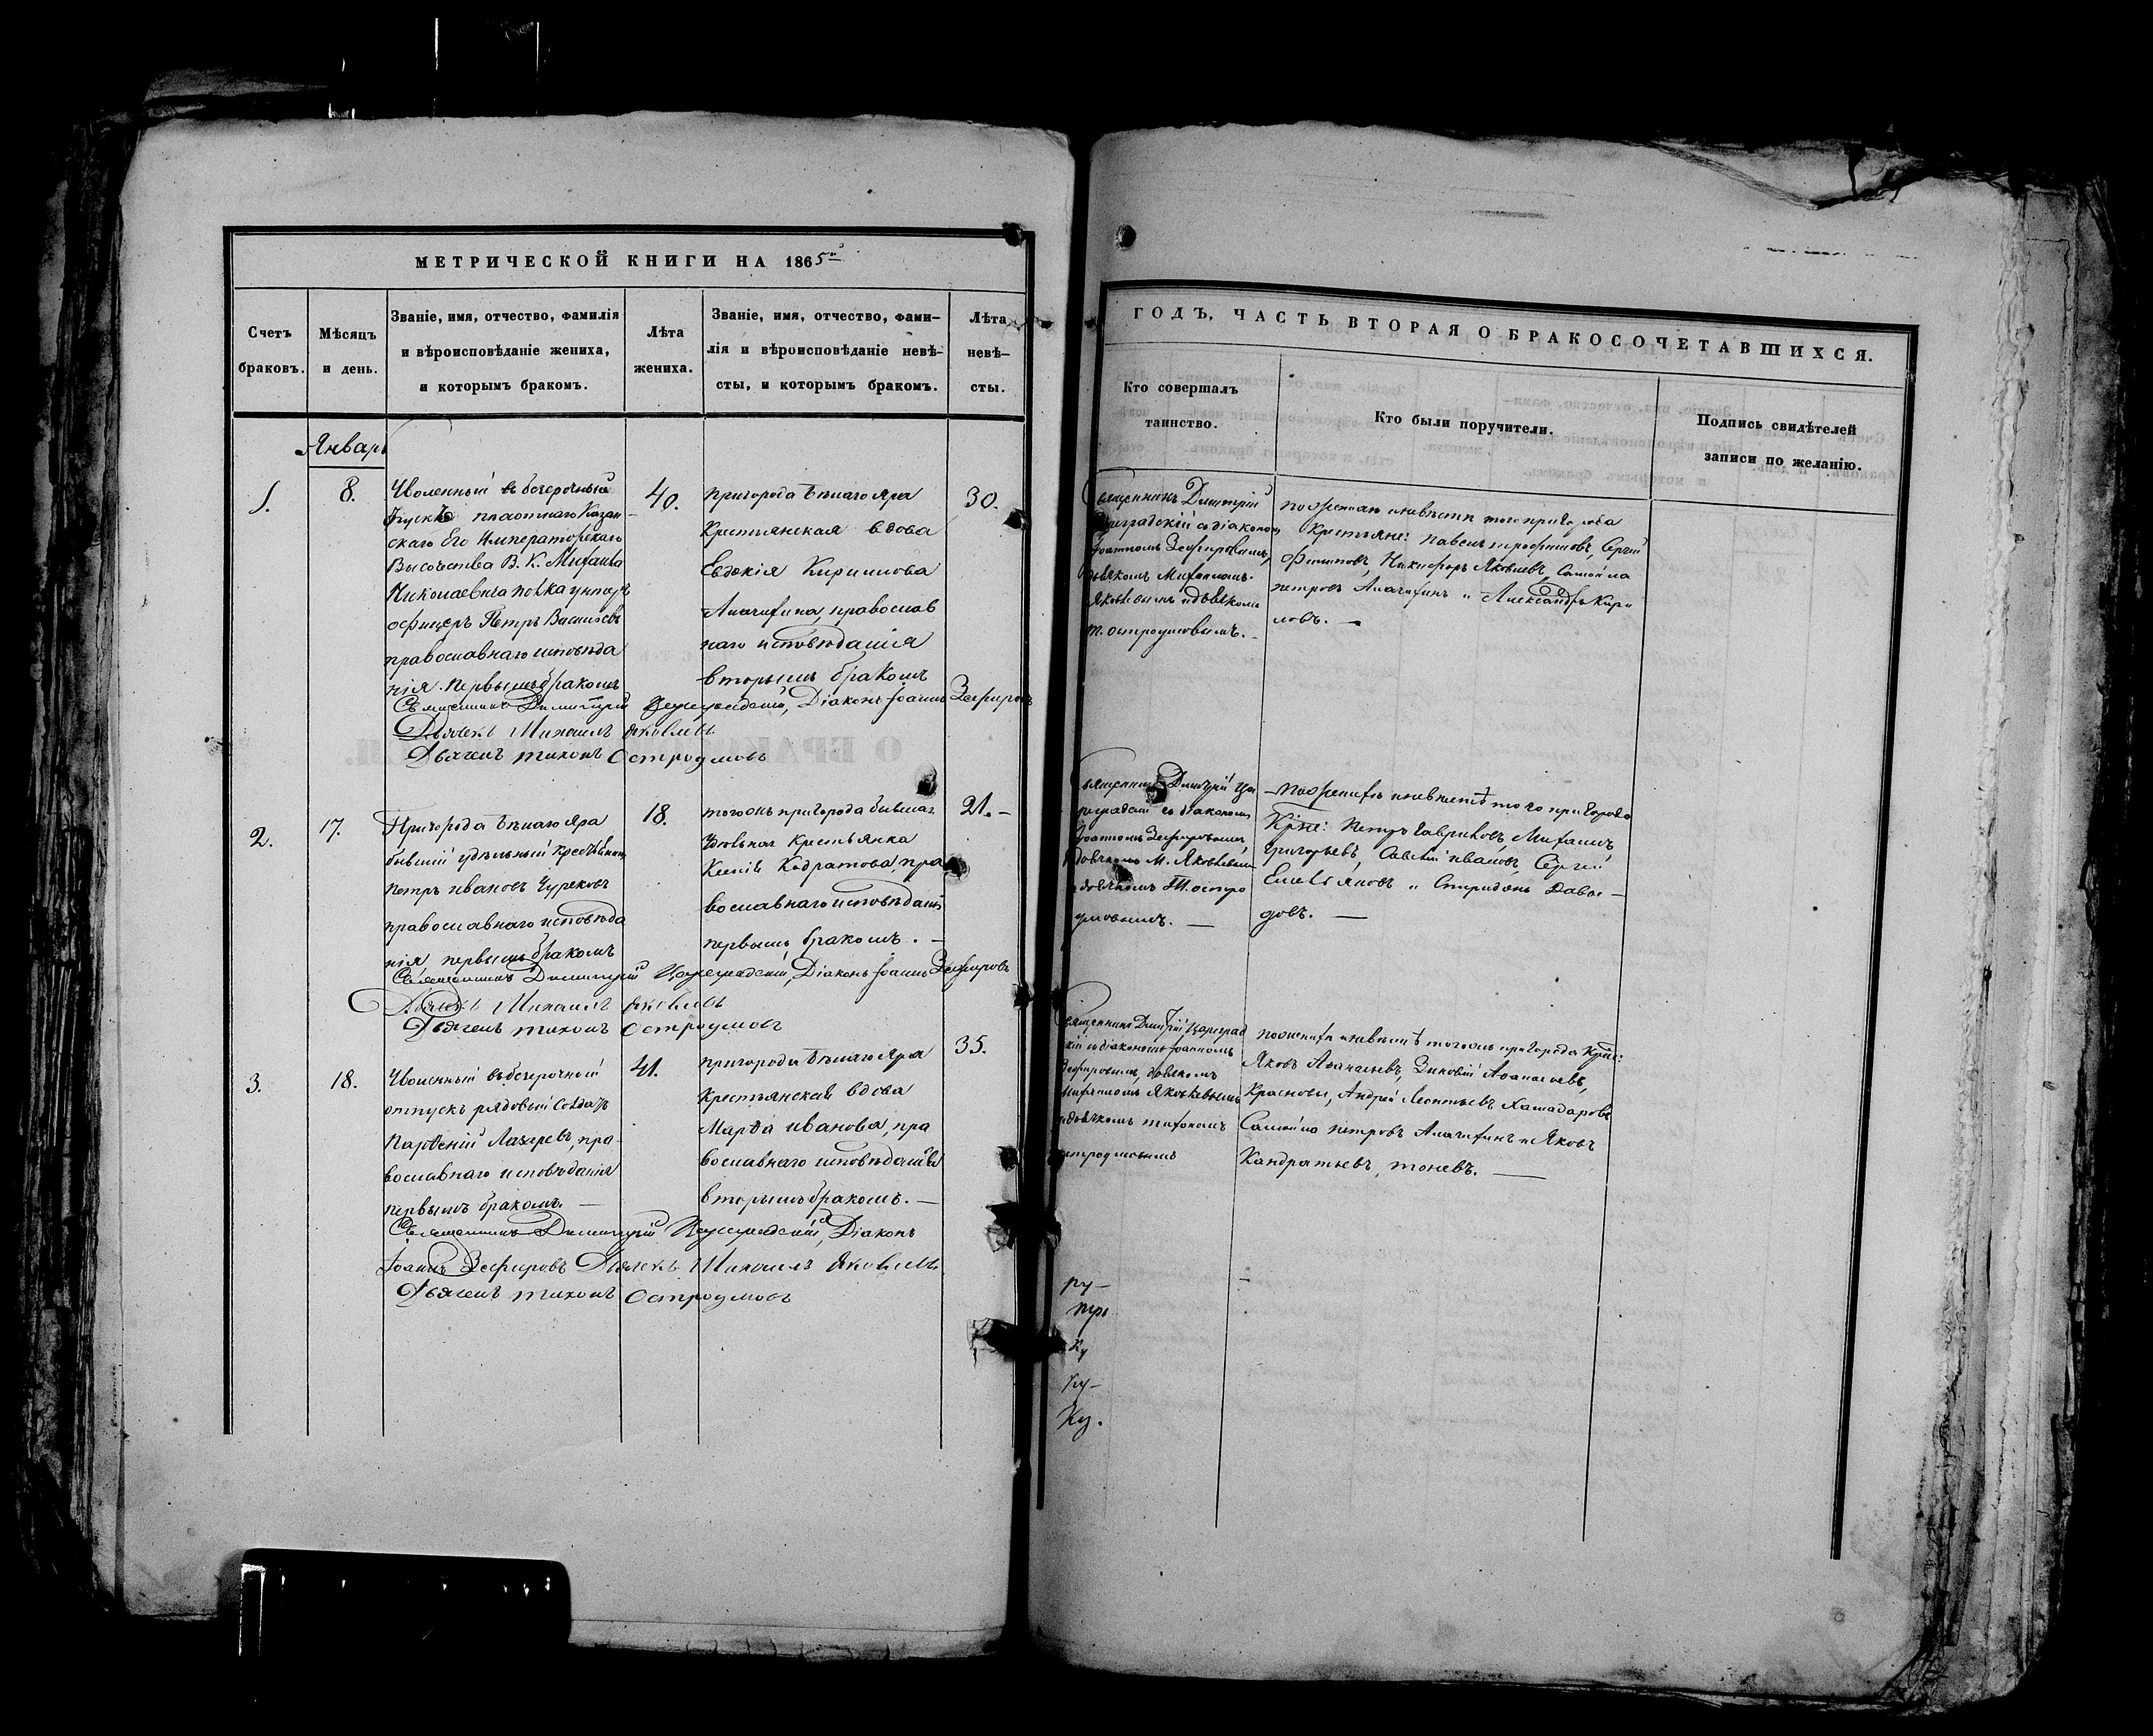 МЕТРИЧЕСКОЙ КНИГИ НА 1865й
Счетъ браковъ.
Мѣсяцъ и день.
Званіе, имя, отчество, фамилія
и вѣроисповѣданіе жениха,
и которымъ бракомъ.
Лѣта жениха.
Званіе, имя, отчество, фами-
лія и вѣроисповѣданіе невѣ-
сты, и которымъ бракомъ.
Лѣта невѣ-
сты.
Январь
1.
8.
Уволенный въ безсрочный
отпускъ
скаго Его Императорскаго
Высочества В. К. Михаила
Николаевича полка унтеръ
офицеръ Петръ Васильевъ
православнаго исповѣда
нія первымъ бракомъ
40.
пригорода Бѣлаго Яра
Крестьянская вдова
Евдокія Кирилова
православ
наго исповѣданія
вторымъ бракомъ
30.
Священникъ Димитрій Цареградскій, Діаконъ Іоаннъ Зефировъ
Дьячекъ Михаилъ Яковлевъ
Дьячекъ Тихонъ Остроумовъ
2.
17.
Пригорода Бѣлаго Яра
бывшій удѣльный крестьянинъ
Петръ Ивановъ Чурековъ
православнаго исповѣда
нія первымъ бракомъ
18.
тогожъ пригорода бывшая
удѣльная Крестьянка
Кодратова, пра
вославнаго исповѣданія
первымъ бракомъ. —
21. —
Священникъ Димитрій Цареградскій, Діаконъ Іоаннъ Зефировъ
Дьячекъ Михаилъ Яковлевъ
Дьячекъ Тихонъ Остроумовъ
3.
18.
Уволенный въ безсрочный
отпускъ рядовый Солдатъ
Парѳеній Лазаревъ, пра-
вославнаго исповѣданія
первымъ бракомъ. —
41.
пригорода Бѣлаго Яра
Крестьянская вдова
Марѳа Иванова, пра
вославнаго исповѣданія
вторымъ бракомъ. —
35.
Священникъ Димитрій Цареградскій, Діаконъ
Іоаннъ Зефировъ Дьячекъ Михаилъ Яковлевъ
Дьячекъ Тихонъ Остроумовъ
ГОДЪ, ЧАСТЬ ВТОРАЯ О БРАКОСОЧЕТАВШИХСЯ.
Кто совершалъ
таинство.
Кто были поручители.
Подпись свидѣтелей
записи по желанію.
Священникъ Дмитрій
Цареградскій съ діакономъ
Іоанномъ Зефировымъ,
дьячкомъ Михаиломъ
Яковлевымъ и дьячкомъ
Т. Остроумовымъ. —
по женихѣ и невѣстѣ того пригорода
Крестьяне: Павелъ Трофимовъ, Сергій
Филиповъ, Никифоръ Яковлевъ, Самойла
Петровъ и Александръ Кири
ловъ. —
Священникъ Дмитрій Ца
реградскій съ діакономъ
Іоанномъ Зефировымъ,
дьячкомъ М. Яковлевымъ
и дьячкомъ Т. Остро
умовымъ. —
— По женихѣ и невѣстѣ того пригорода
Крне: Петръ Гавриловъ, Михаилъ
Григорьевъ, Савелій Ивановъ, Сергій
Емельяновъ и Спиридонъ Давы-
довъ. —
Священникъ Дмитрій Цареград
скій съ діакономъ Іоанномъ
Зефировымъ, дьячкомъ
Михаиломъ Яковлевымъ
и дьячкомъ Тихономъ
Остроумовымъ
по женихѣ и невѣстѣ тогожъ пригорода Крне:
Яковъ Аѳанасьевъ, Зиновій Аѳанасьевъ,
Красновы, Андрей Леонтьевъ
Самойла Петровъ и Яковъ
Кандратьевъ, —
ру—
при
ку
ку—
ку.